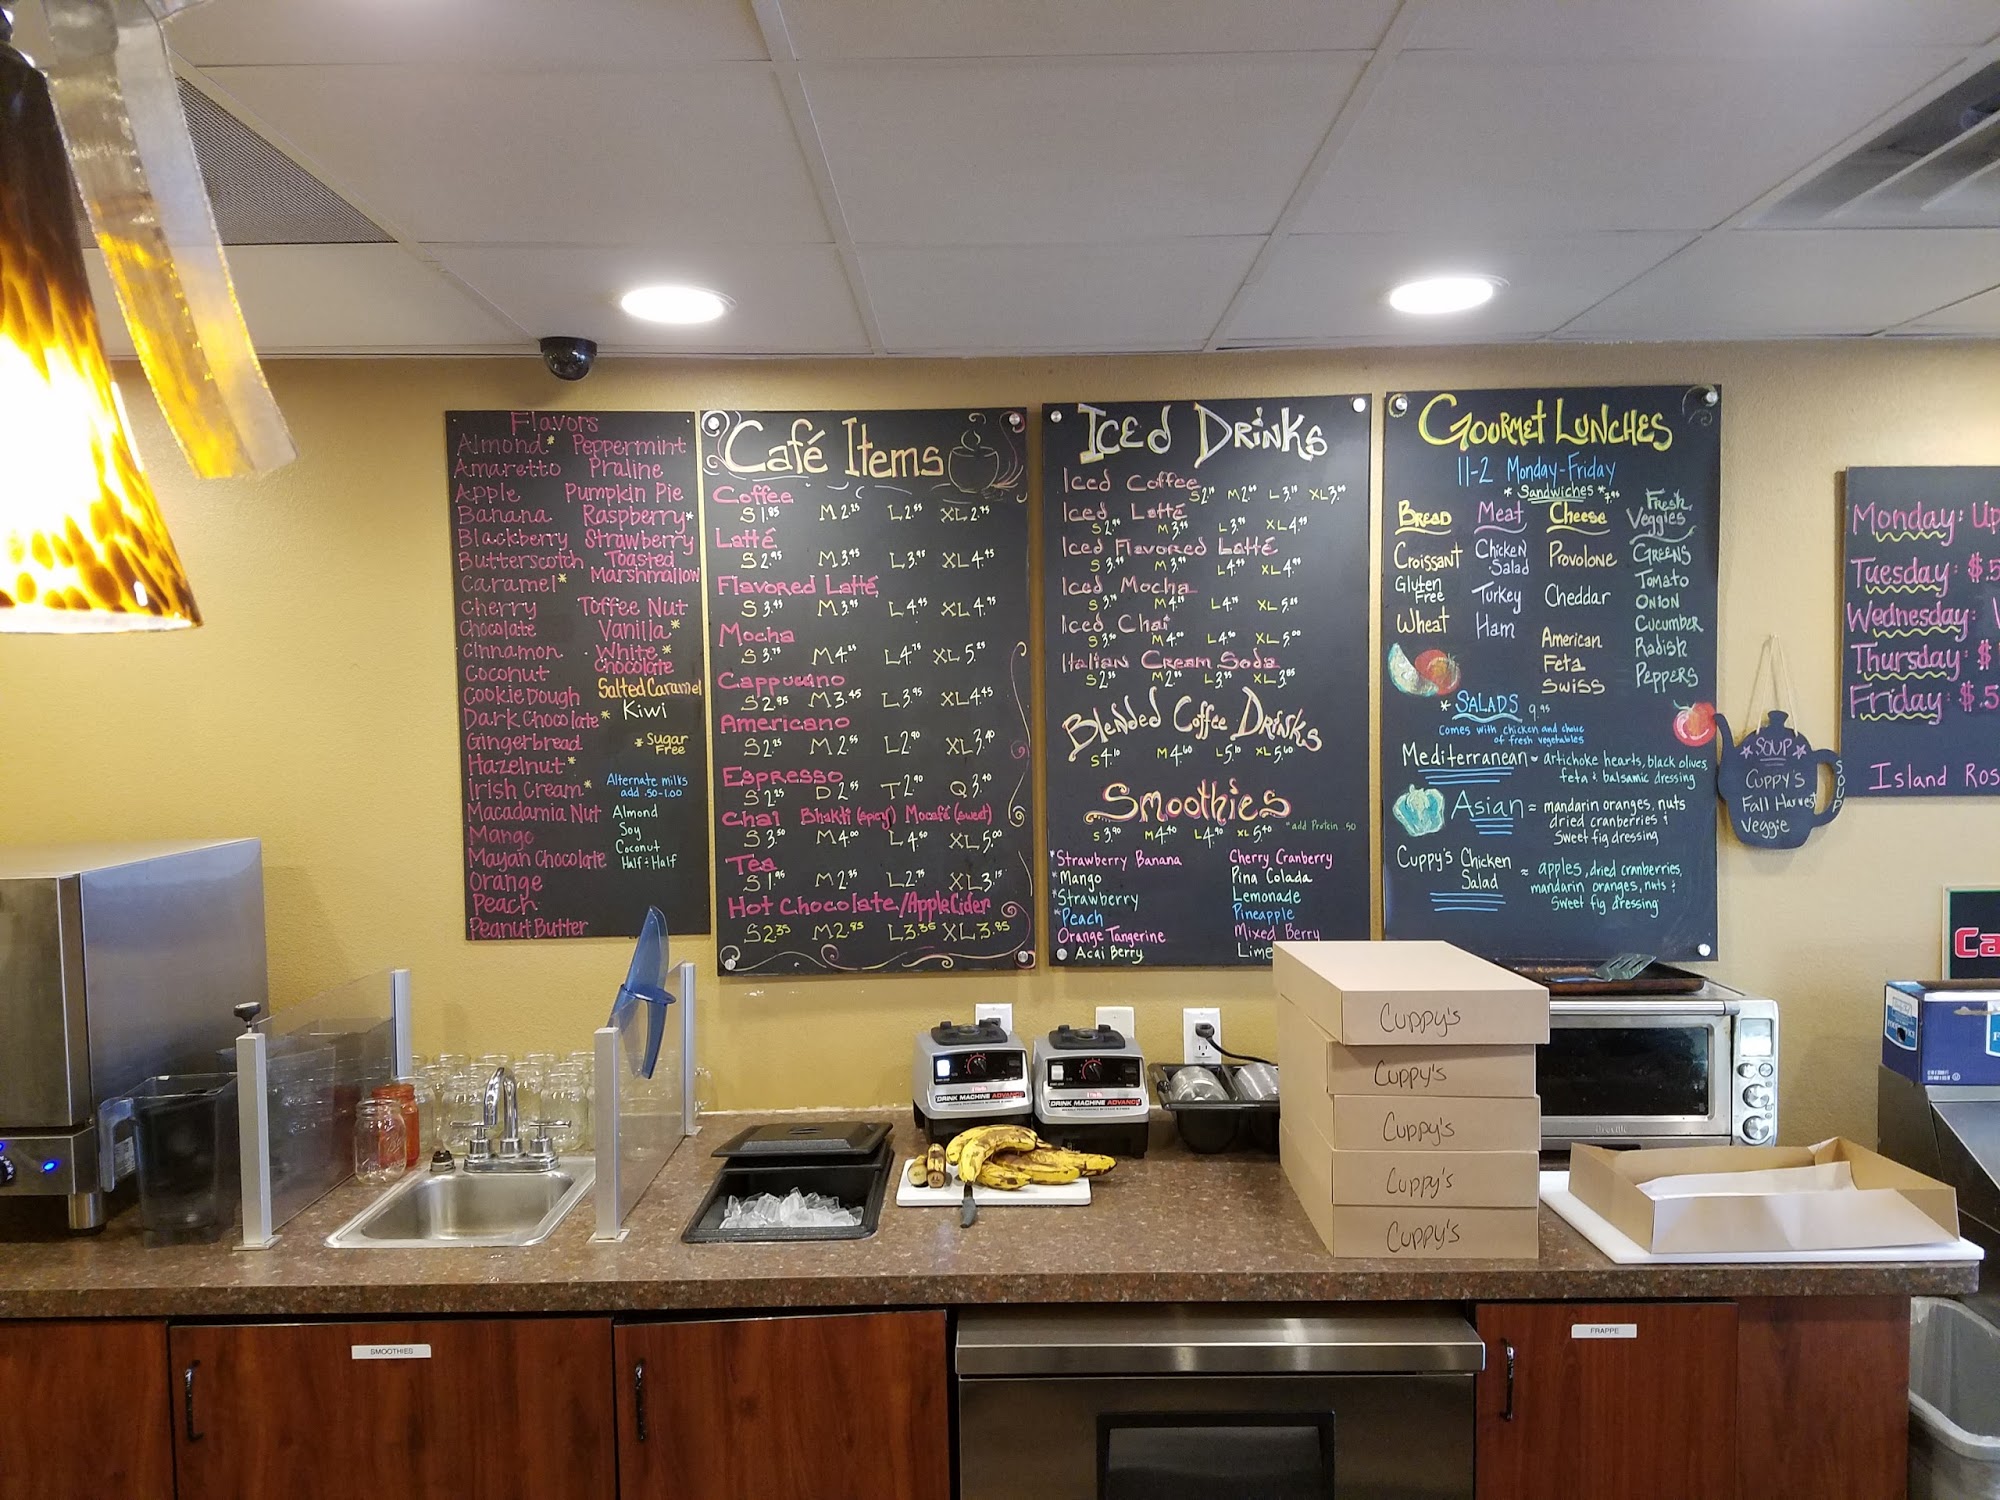 Flavors
Almond* Peppermint
Amaretto Praline
Apple Pumpkin Pie
Banana Raspberry*
Blackberry Strawberry
Butterscotch Toasted
Caramel* Marshmallow
Cherry Toffee Nut
Chocolate Vanilla*
Cinnamon White*
Coconut Chocolate
Cookie Dough Salted Caramel
Dark Chocolate* Kiwi
Gingerbread * Sugar
Hazelnut* Free
Irish Cream* Alternate milks
add .50-1.00
Macadamia Nut Almond
Mango Soy
Mayan Chocolate Coconut
Half & Half
Orange
Peach
Peanut Butter
Café Items
Coffee
S 1.85 M 2.25 L 2.55 XL 2.75
Latté
S 2.95 M 3.45 L 3.95 XL 4.45
Flavored Latté
S 3.45 M 3.95 L 4.45 XL 4.95
Mocha
S 3.75 M 4.25 L 4.75 XL 5.25
Cappuccino
S 2.95 M 3.45 L 3.95 XL 4.45
Americano
S 2.25 M 2.55 L 2.90 XL 3.40
Espresso
S 2.25 D 2.55 T 2.90 Q 3.40
Chai Bhakti (spicy) Mocafé (sweet)
S 3.50 M 4.00 L 4.50 XL 5.00
Tea
S 1.95 M 2.35 L 2.75 XL 3.15
Hot Chocolate/Apple Cider
S 2.35 M 2.85 L 3.35 XL 3.85
Iced Drinks
Iced Coffee
S 2. M 2. L 3. XL 3.
Iced Latté
S 2. M 3. L 3. XL 4.
Iced Flavored Latté
S 3. M 3. L 4. XL 4.
Iced Mocha
S 3.75 M 4.25 L 4.75 XL 5.25
Iced Chai
S 3.50 M 4.00 L 4.50 XL 5.00
Italian Cream Soda
S 2.35 M 2.85 L 3.35 XL 3.85
Blended Coffee Drinks
S 4.10 M 4.60 L 5.10 XL 5.60
Smoothies
S 3.90 M 4.40 L 4.90 XL 5.40 *add Protein .50
*Strawberry Banana Cherry Cranberry
*Mango Pina Colada
*Strawberry Lemonade
*Peach Pineapple
Orange Tangerine Mixed Berry
Acai Berry Lime
Gourmet Lunches
11-2 Monday-Friday
* Sandwiches * 7.95
Bread Meat Cheese Fresh Veggies
Croissant Chicken Salad Provolone Greens
Gluten Free Turkey Cheddar Tomato
Onion
Wheat Ham American Cucumber
Feta Radish
Swiss Peppers
* Salads 9.95
Comes with chicken and choice
of fresh vegetables
Mediterranean ~ artichoke hearts, black olives,
feta & balsamic dressing
Asian ~ mandarin oranges, nuts
dried cranberries &
Sweet fig dressing
Cuppy's Chicken Salad ~ apples, dried cranberries,
mandarin oranges, nuts &
Sweet fig dressing
*SOUP*
Cuppy's
Fall Harvest
Veggie
SOUP
Monday: Up
Tuesday: $.5
Wednesday:
Thursday: $
Friday: $.5
Island Ros
Ca
Cuppy's
Cuppy's
Cuppy's
Cuppy's
Cuppy's
DRINK MACHINE ADVANCE
DRINK MACHINE ADVANCE
Breville
SMOOTHIES
FRAPPE